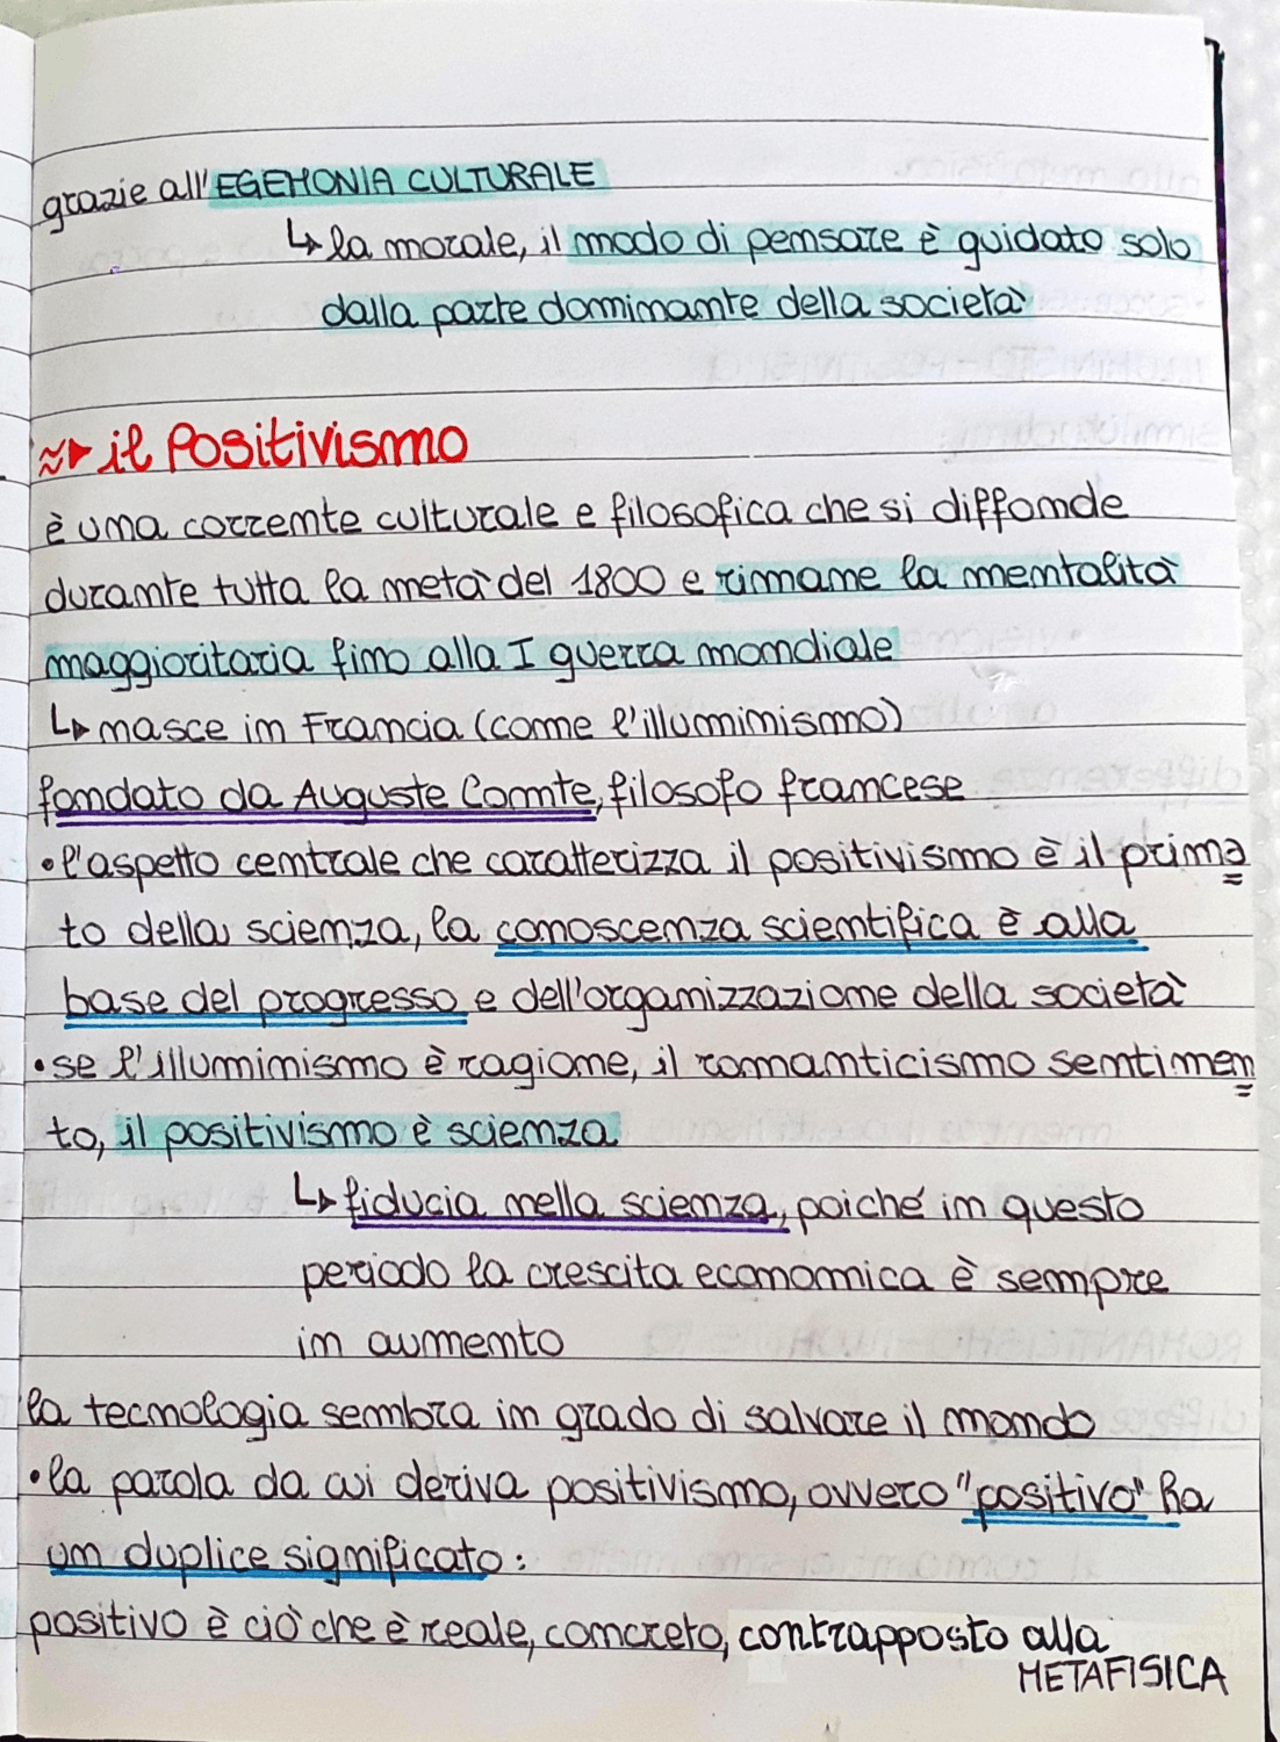 grazie all'EGEMONIA CULTURALE
↳ la morale, il modo di pensare è guidato solo
dalla parte dominante della società
≈► il Positivismo
è una corrente culturale e filosofica che si diffonde
durante tutta la metà del 1800 e rimane la mentalità
maggioritaria fino alla I guerra mondiale
↳ nasce in Francia (come l'illuminismo)
fondato da Auguste Comte, filosofo francese
• l'aspetto centrale che caratterizza il positivismo è il prima=
to della scienza, la conoscenza scientifica è alla
base del progresso e dell'organizzazione della società
• se l'illuminismo è ragione, il romanticismo sentimen=
to, il positivismo è scienza
↳ fiducia nella scienza, poiché in questo
periodo la crescita economica è sempre
in aumento
la tecnologia sembra in grado di salvare il mondo
• la parola da cui deriva positivismo, ovvero "positivo" ha
un duplice significato:
positivo è ciò che è reale, concreto, contrapposto alla
METAFISICA